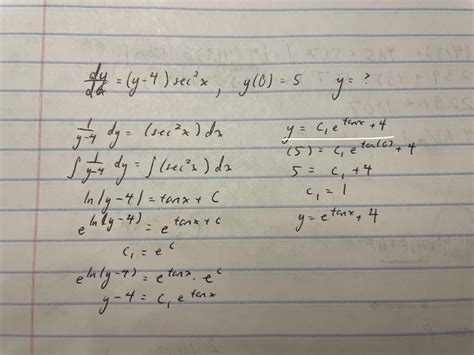 dy/dx = (y-4) sec²x, y(0) = 5 y = ?
1/(y-4) dy = (sec²x) dx
∫ 1/(y-4) dy = ∫ (sec²x) dx
ln|y-4| = tanx + C
e^(ln(y-4)) = e^(tanx + C)
C₁ = e^C
e^(ln(y-4)) = e^(tanx) · e^C
y-4 = C₁ e^(tanx)
y = C₁ e^(tanx) + 4
(5) = C₁ e^(tan(0)) + 4
5 = C₁ + 4
C₁ = 1
y = e^(tanx) + 4